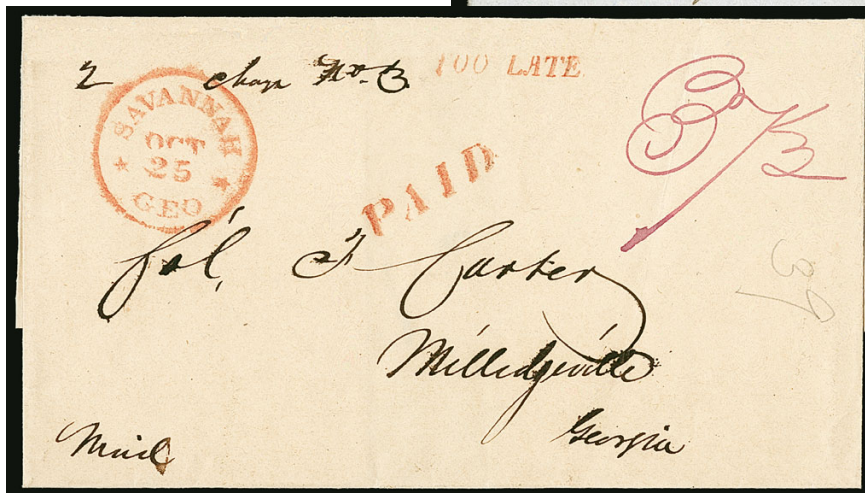 2
No. 3
TOO LATE
SAVANNAH
OCT
25
GEO
PAID
Col. F Carter
Milledgeville
Georgia
Mail